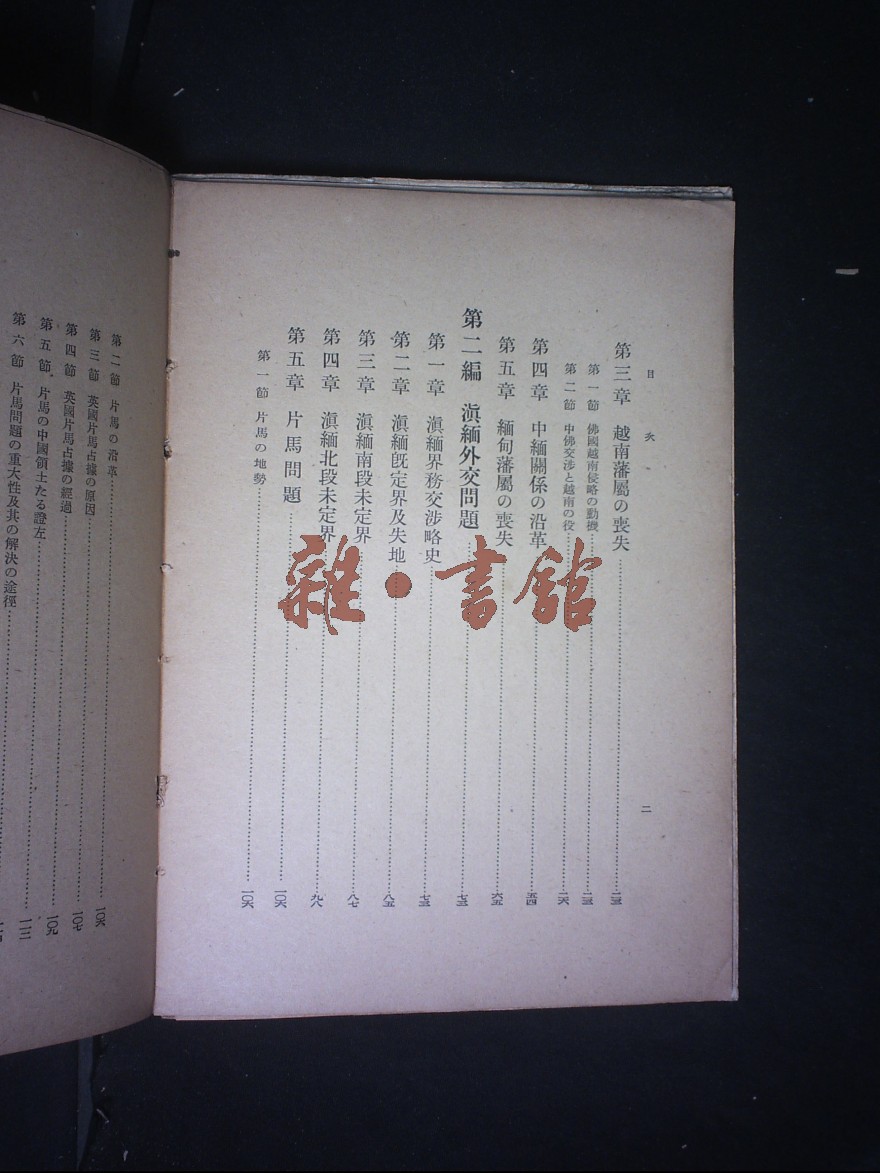 目次
二
第三章 越南藩屬の喪失……二三
第一節 佛國越南侵略の動機……二三
第二節 中佛交涉と越南の役……二六
第四章 中緬關係の沿革……五四
第五章 緬甸藩屬の喪失……六五
第二編 滇緬外交問題……七三
第一章 滇緬界務交涉略史……七三
第二章 滇緬既定界及失地……八五
第三章 滇緬南段未定界……八七
第四章 滇緬北段未定界……九八
第五章 片馬問題……一〇六
第一節 片馬の地勢……一〇六
第二節 片馬の沿革……一〇六
第三節 英國片馬占據の原因……一〇七
第四節 英國片馬占據の經過……一〇九
第五節 片馬の中國領土たる證左……一一二
第六節 片馬問題の重大性及其の解決の途徑
雜·書館